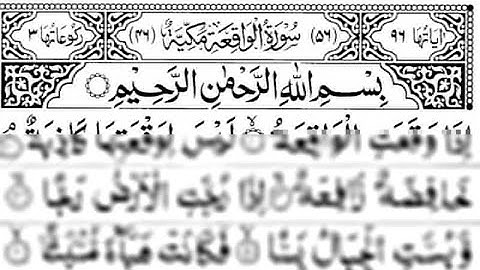 اٰیَاتُهَا ٩٦ (٥٦) سُوْرَةُ الْوَاقِعَةِ مَكِّيَّةٌ (٤٦) رُكُوْعَاتُهَا ٣
بِسْمِ اللهِ الرَّحْمٰنِ الرَّحِيْمِ
اِذَا وَقَعَتِ الْوَاقِعَةُ لَيْسَ لِوَقْعَتِهَا كَاذِبَةٌ
خَافِضَةٌ رَّافِعَةٌ اِذَا رُجَّتِ الْاَرْضُ رَجًّا
وَّبُسَّتِ الْجِبَالُ بَسًّا فَكَانَتْ هَبَآءً مُّنْۢبَثًّا